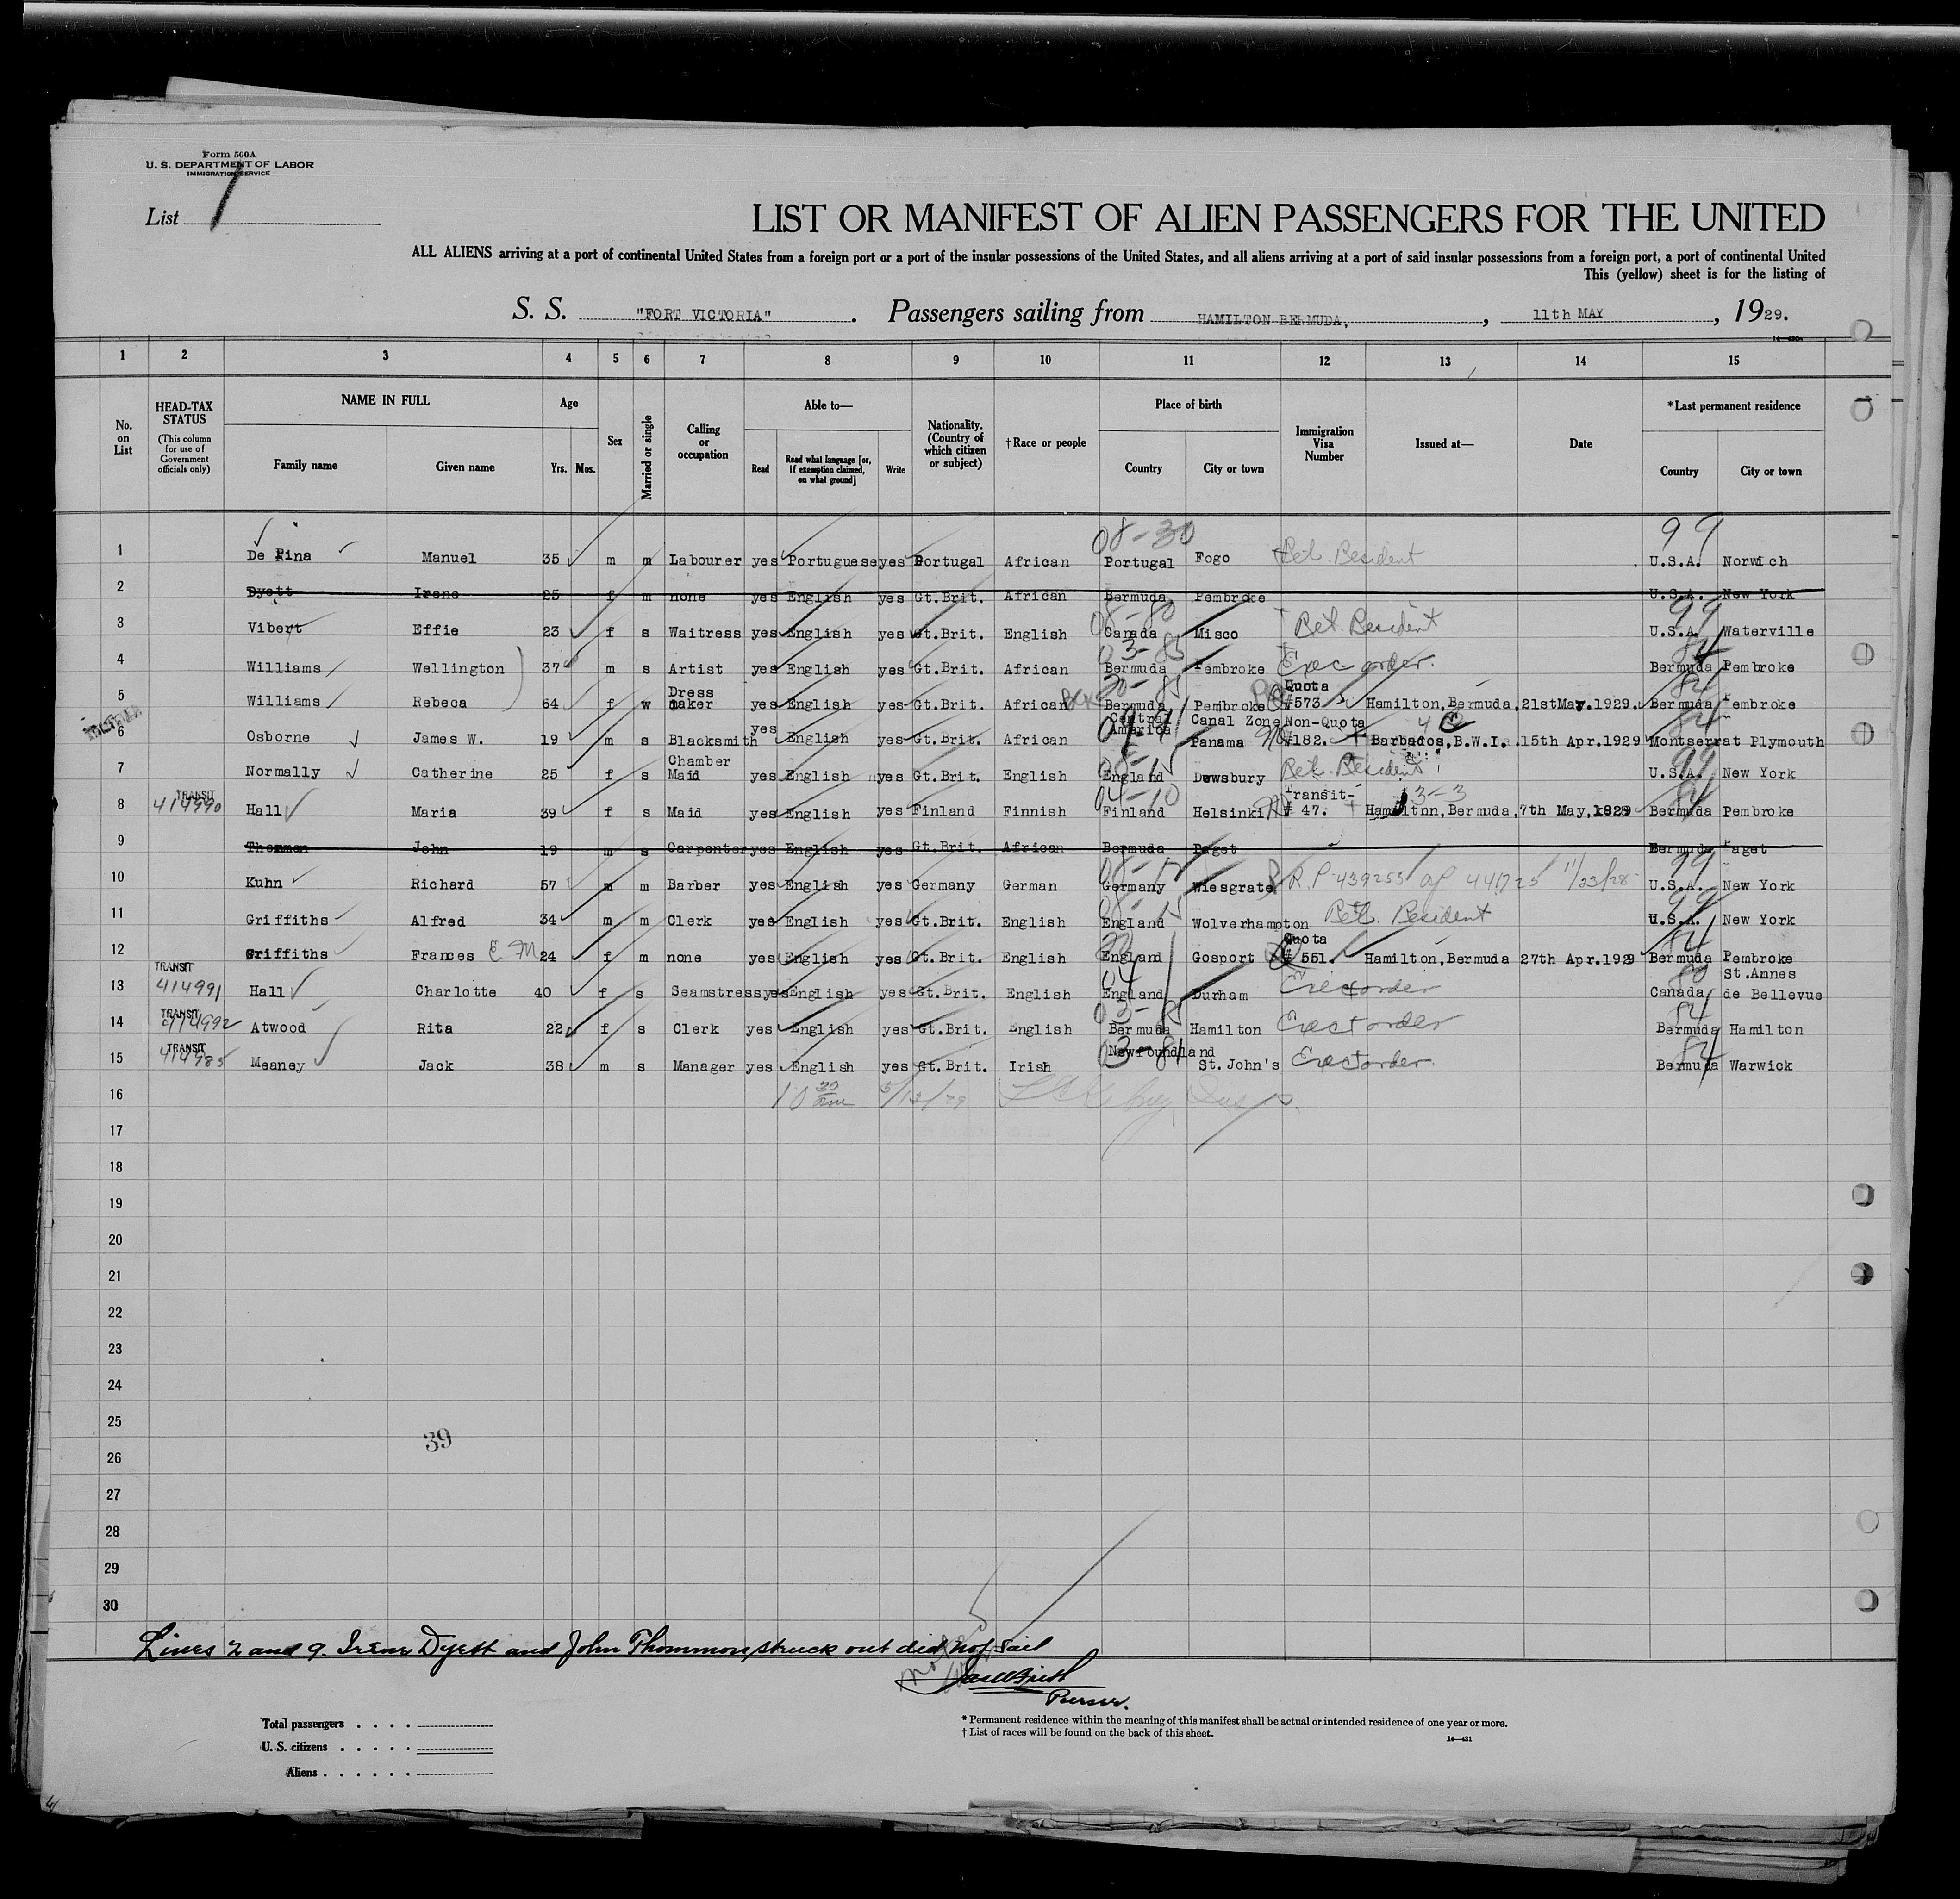 Form 500A
U. S. DEPARTMENT OF LABOR
IMMIGRATION SERVICE
List 1
LIST OR MANIFEST OF ALIEN PASSENGERS FOR THE UNITED
ALL ALIENS arriving at a port of continental United States from a foreign port or a port of the insular possessions of the United States, and all aliens arriving at a port of said insular possessions from a foreign port, a port of continental United
This (yellow) sheet is for the listing of
S. S. "FORT VICTORIA". Passengers sailing from HAMILTON BERMUDA, , 11th MAY , 1929.
1 2 3 4 5 6 7 8 9 10 11 12 13 14 15
No. on List
HEAD-TAX STATUS (This column for use of Government officials only)
NAME IN FULL
Family name Given name
Age
Yrs. Mos.
Sex
Married or single
Calling or occupation
Able to—
Read Read what language [or, if exemption claimed, on what ground] Write
Nationality. (Country of which citizen or subject)
†Race or people
Place of birth
Country City or town
Immigration Visa Number
Issued at—
Date
*Last permanent residence
Country City or town
08-30 99
1 De Pina Manuel 35 m m Labourer yes Portuguese yes Portugal African Portugal Fogo Ret. Resident U.S.A. Norwich
2 Dyett Irene 25 f m none yes English yes Gt.Brit. African Bermuda Pembroke U.S.A. New York
3 Vibert Effie 23 f s Waitress yes English yes Gt.Brit. English Canada Misco Ret. Resident U.S.A. Waterville
4 Williams Wellington 37 m s Artist yes English yes Gt.Brit. African Bermuda Pembroke Exec order. Bermuda Pembroke
5 Williams Rebeca 64 f w Dress maker yes English yes Gt.Brit. African Bermuda Pembroke Quota #573 Hamilton, Bermuda, 21st May. 1929. Bermuda Pembroke
6 Osborne James W. 19 m s Blacksmith yes English yes Gt.Brit. African Central America Canal Zone Panama Non-Quota #182. Barbados, B.W.I. 15th Apr. 1929 Montserrat Plymouth
7 Normally Catherine 25 f s Chamber Maid yes English yes Gt.Brit. English England Dewsbury Ret. Resident U.S.A. New York
8 TRANSIT 414990 Hall Maria 39 f s Maid yes English yes Finland Finnish Finland Helsinki Transit- # 47. Hamiltnn, Bermuda, 7th May, 1929 Bermuda Pembroke
9 Thommon John 19 m s Carpenter yes English yes Gt.Brit. African Bermuda Paget Bermuda Paget
10 Kuhn Richard 57 m m Barber yes English yes Germany German Germany Wiesgrate R.P-439255 ap 441725 11/23/28 U.S.A. New York
11 Griffiths Alfred 34 m m Clerk yes English yes Gt.Brit. English England Wolverhampton Ret. Resident U.S.A. New York
12 Griffiths Frances E M 24 f m none yes English yes Gt.Brit. English England Gosport Quota # 551. Hamilton, Bermuda 27th Apr. 1929 Bermuda Pembroke
13 TRANSIT 414991 Hall Charlotte 40 f s Seamstress yes English yes Gt.Brit. English England Durham Exec order Canada St. Annes de Bellevue
14 TRANSIT 414992 Atwood Rita 22 f s Clerk yes English yes Gt.Brit. English Bermuda Hamilton Exec order Bermuda Hamilton
15 TRANSIT 414985 Meaney Jack 38 m s Manager yes English yes Gt.Brit. Irish Newfoundland St. John's Exec order. Bermuda Warwick
16 10 30 am 5/13/29
17
18
19
20
21
22
23
24
25
39
26
27
28
29
30
Lines 2 and 9. Irene Dyett and John Thommon struck out did not sail
Purser.
Total passengers . . . .
U. S. citizens . . . . .
Aliens . . . . . .
* Permanent residence within the meaning of this manifest shall be actual or intended residence of one year or more.
† List of races will be found on the back of this sheet.
14—431